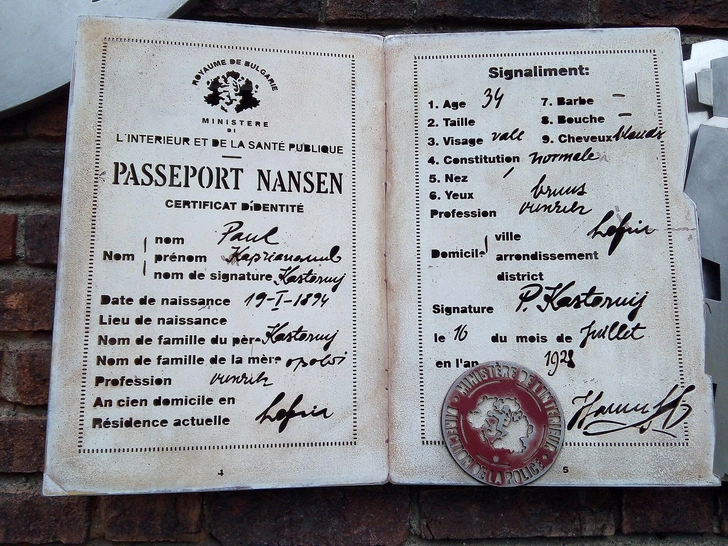 ROYAUME DE BULGARIE
MINISTERE
DI
L'INTERIEUR ET DE LA SANTÉ PUBLIQUE
PASSEPORT NANSEN
CERTIFICAT DiDENTITÉ
Nom
nom Paul
prénom
nom de signature Kasternij
Date de naissance 19-I-1894
Lieu de naissance
Nom de famille du pèr Kasternij
Nom de famille de la mère
Profession
An cien domicile en
Résidence actuelle
4
Signaliment:
1. Age 34 7. Barbe –
2. Taille 8. Bouche –
3. Visage vale 9. Cheveux
4. Constitution normale
5. Nez /
6. Yeux bruns
Profession
Domicile
ville
arrondissement
district
Signature P. Kasternij
le 16 du mois de Juillet
en l'an 1928
MINISTÈRE DE L'INTERIEUR
DIRECTION DE LA POLICE
5